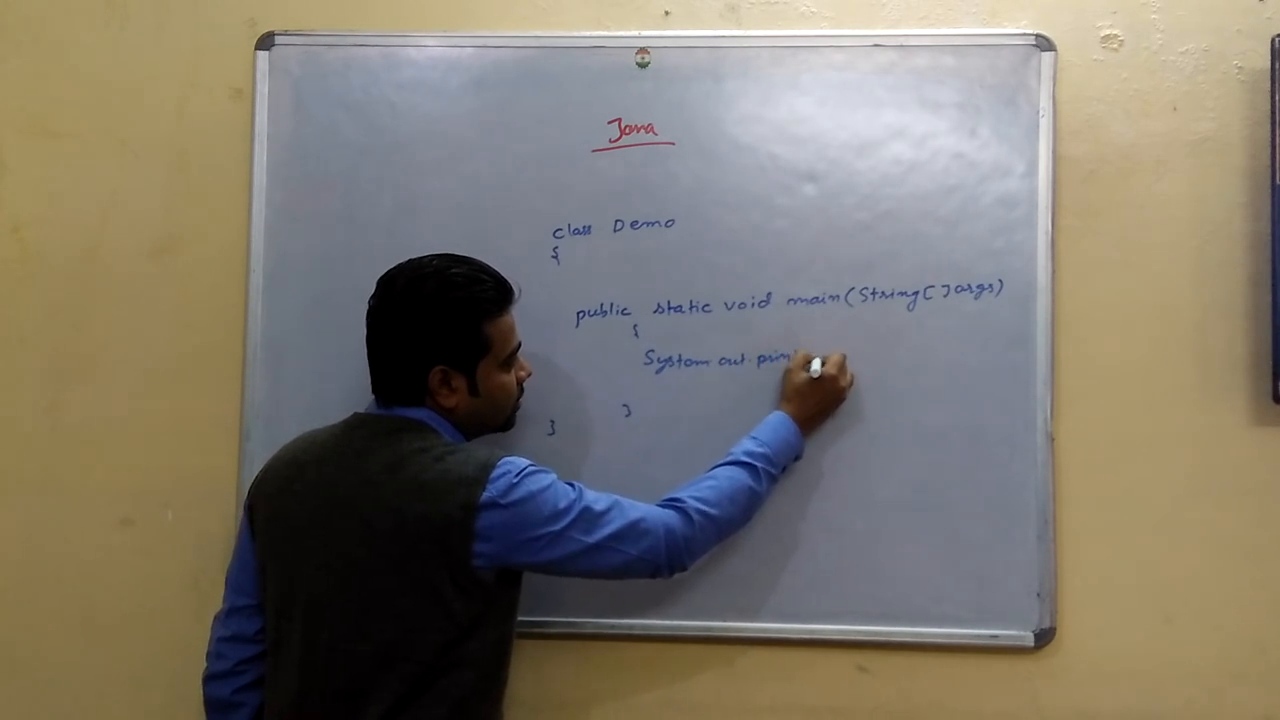 Java
class Demo
{
public static void main(String[]args)
{
System.out.prin
}
}